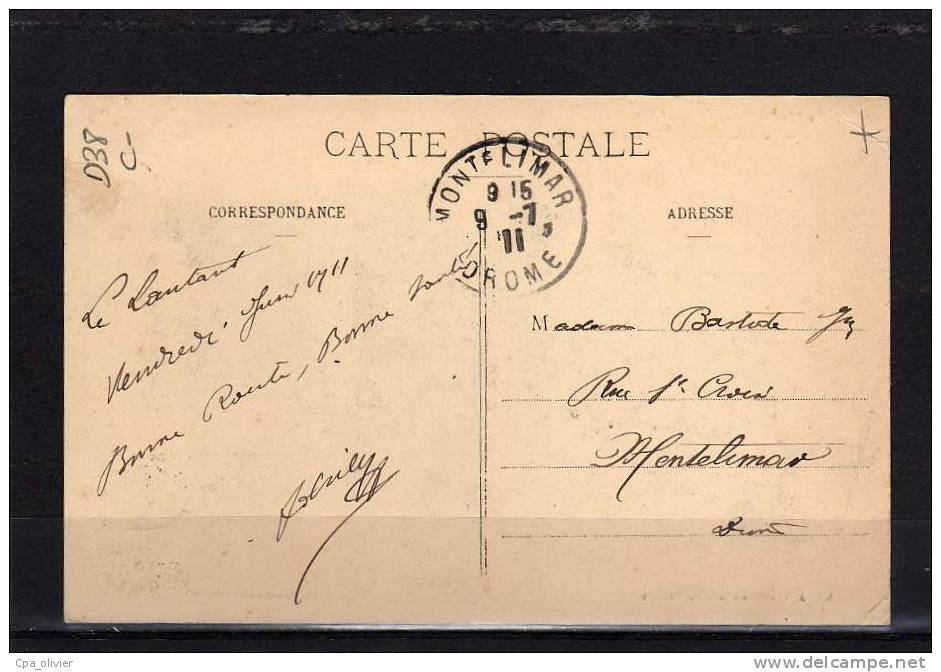 D38
C-
CARTE POSTALE
MONTELIMAR
9 15
9 -7
11
DROME
CORRESPONDANCE
ADRESSE
Le Lautaret
Vendredi Juin 1911
Bonne Route, Bonne Santé
Madame Bastide
Rue Ste Croix
Montelimar
Cpa_olivier
www.delcampe.net